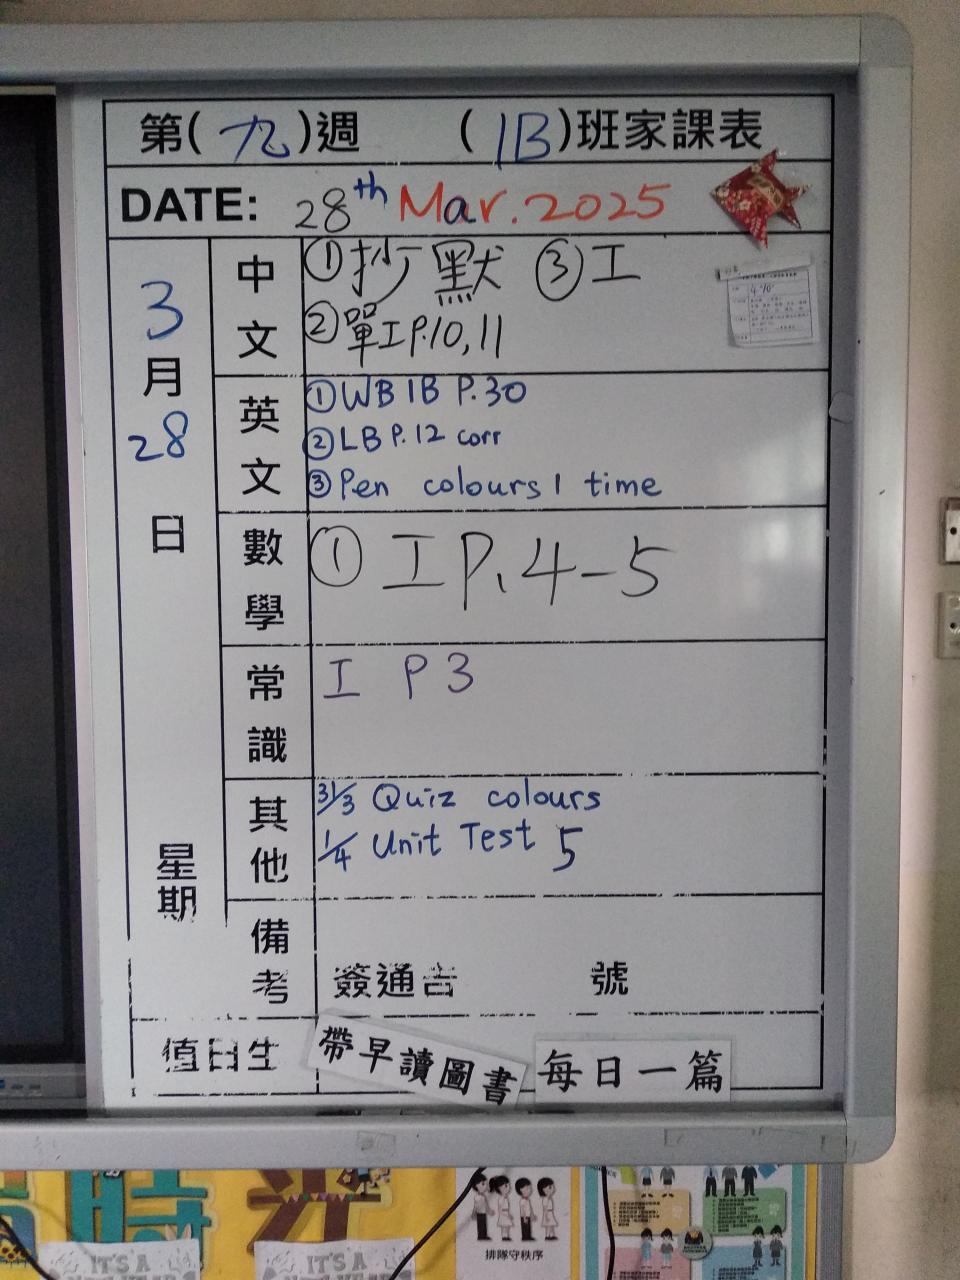 第(九)週 (1B)班家課表
DATE: 28th Mar. 2025
3月28日 星期
中文
①抄默 ③工
②單工P.10,11
英文
①WB 1B P.30
②LB P.12 corr
③Pen colours 1 time
數學
①工P.4-5
常識
工 P3
其他
31/3 Quiz colours
1/4 Unit Test 5
備考
簽通告 號
值日生
帶早讀圖書 每日一篇
時光
IT'S A
IT'S A
排隊守秩序